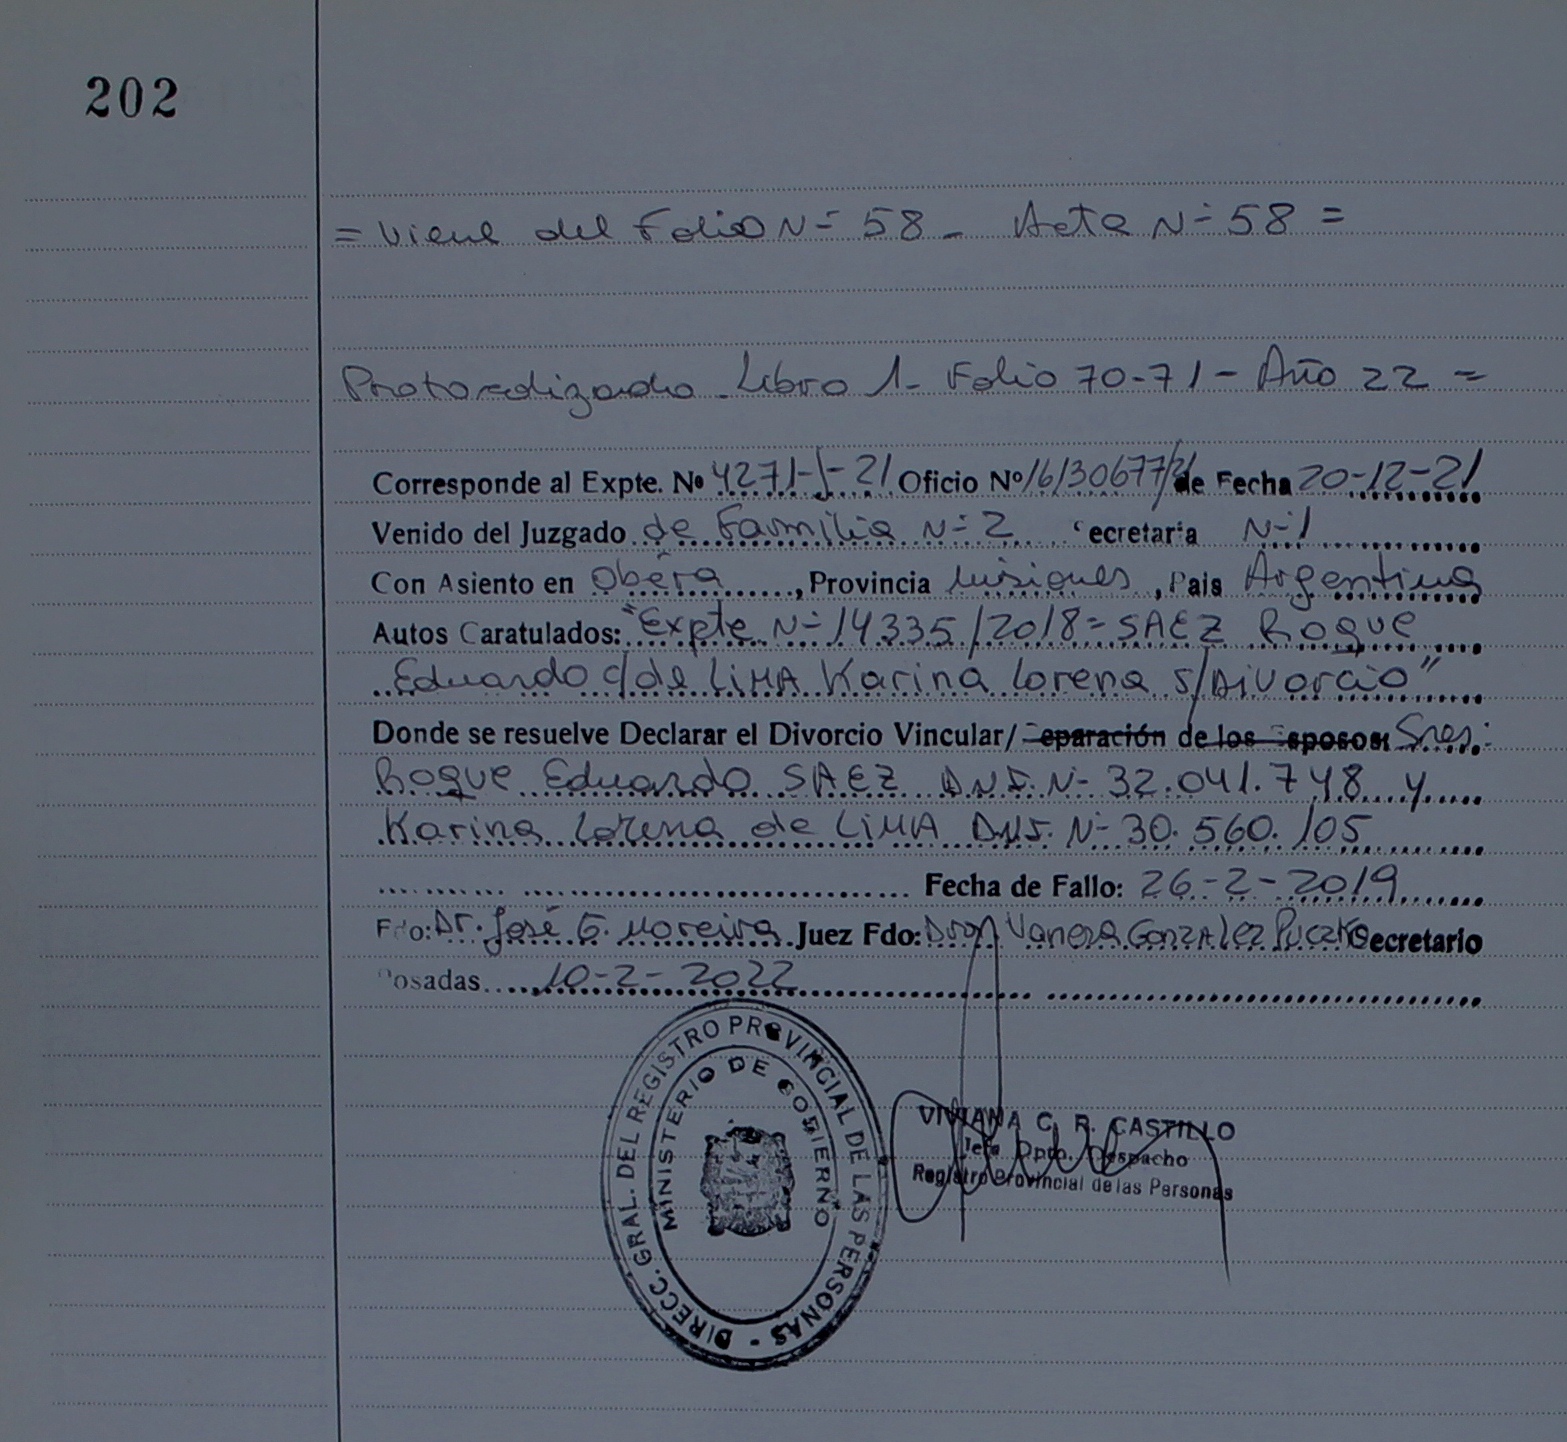 202
= Viene del Folio Nº 58 - Acta Nº 58 =
Protocolizado - Libro 1 - Folio 70-71 - Año 22 =
Corresponde al Expte. Nº 4271-J-21 Oficio Nº 16130677/21 de Fecha 20-12-21
Venido del Juzgado de Familia Nº 2 ecretaria Nº 1
Con Asiento en Oberá, Provincia Misiones, Pais Argentina
Autos Caratulados: "Expte Nº 14335/2018 = SAEZ Roque
Eduardo c/de LIMA Karina Lorena s/Divorcio"
Donde se resuelve Declarar el Divorcio Vincular/ eparación de los sposos: Sres:
Roque Eduardo SAEZ D.N.I. Nº 32.041.748 y
Karina Lorena de LIMA D.N.I. Nº 30.560.105
Fecha de Fallo: 26-2-2019
Fdo: Dr. José G. Moreira Juez Fdo: Dra Vanesa Gonzalez ecretario
osadas 10-2-2022
DIRECC. GRAL. DEL REGISTRO PROVINCIAL DE LAS PERSONAS -
MINISTERIO DE GOBIERNO
VIVIANA C. R. CASTILLO
Jefa Dpto. Despacho
Registro Provincial de las Personas